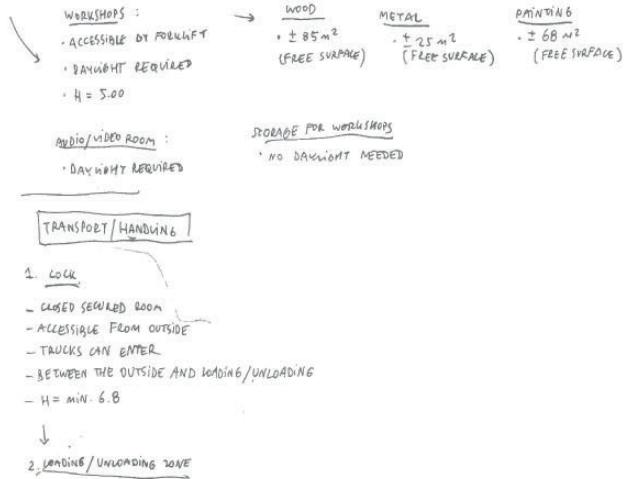 WORKSHOPS :
· ACCESSIBLE BY FORKLIFT
· DAYLIGHT REQUIRED
· H = 5.00
WOOD
· ± 85 m²
(FREE SURFACE)
METAL
· ± 25 m²
(FREE SURFACE)
PAINTING
· ± 68 m²
(FREE SURFACE)
AUDIO/VIDEO ROOM :
· DAYLIGHT REQUIRED
STORAGE FOR WORKSHOPS
· NO DAYLIGHT NEEDED
TRANSPORT/HANDLING
1. LOCK
- CLOSED SECURED ROOM
- ACCESSIBLE FROM OUTSIDE
- TRUCKS CAN ENTER
- BETWEEN THE OUTSIDE AND LOADING/UNLOADING
- H = MIN. 6.8
2. LOADING/UNLOADING ZONE